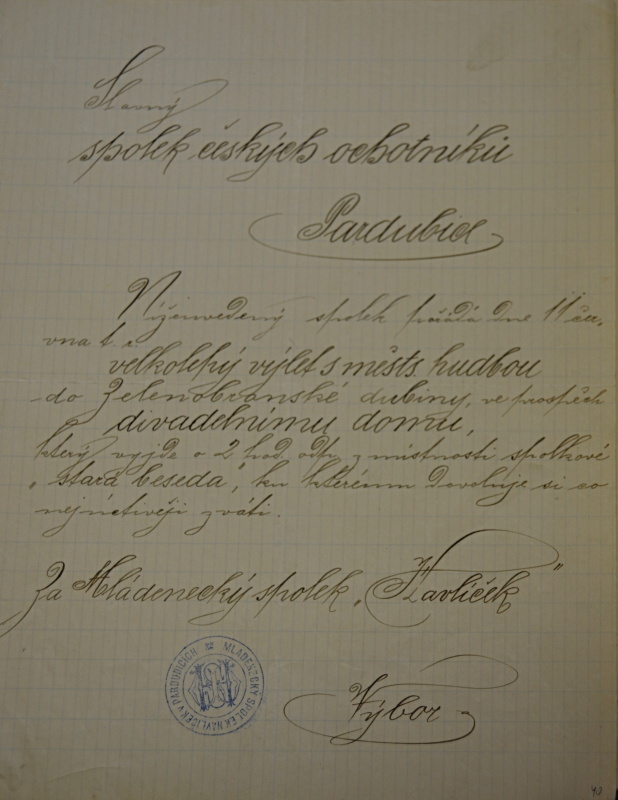 Slavný
spolek českých ochotníků
Pardubice
Níženvedený spolek pořádá dne 11 čer-
vna t. r.
velkolepý výlet s městs. hudbou
do Zelenobranské dubiny, ve prospěch
divadelnímu domu,
který vyjde o 2 hod. odp. z místnosti spolkové
„stará beseda“, ku kterému dovoluje si co
nejuctivěji zváti.
Za Mládenecký spolek „Havlíček“
MLÁDENECKÝ SPOLEK HAVLÍČEK V PARDUBICÍCH
Výbor